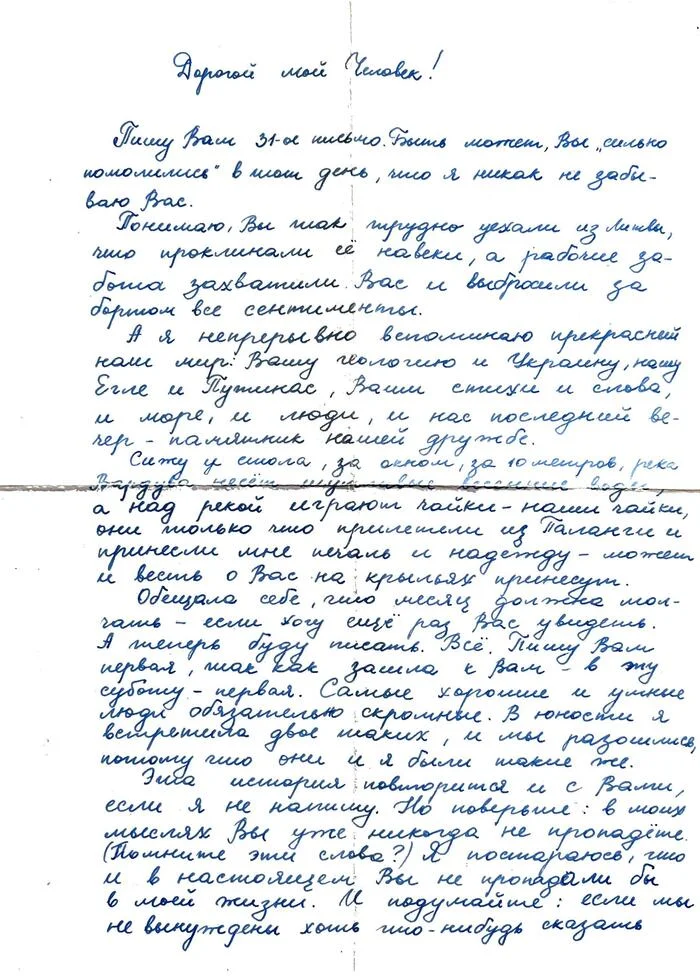 Дорогой мой Человек!
Пишу Вам 31-ое письмо. Быть может, Вы „сильно
помолились" в тот день, что я никак не забы-
ваю Вас.
Понимаю, Вы так трудно уехали из Литвы,
что проклинали её навеки, а рабочие за-
бота захватили Вас и выбросили за
бортом все сентименты.
А я непрерывно вспоминаю прекрасный
наш мир: Вашу геологию и Украину, нашу
Егле и Путинас, Ваши стихи и слова,
и море, и люди, и нас последний ве-
чер - памятник нашей дружбе.
Сижу у стола, за окном, за 10 метров, река
Вардува несёт весенние воды,
а над рекой играют чайки - наши чайки,
они только что прилетели из Паланги и
принесли мне печаль и надежду - может
и весть о Вас на крыльях принесут.
Обещала себе, что месяц должна мол-
чать - если хочу ещё раз Вас увидеть.
А теперь буду писать. Всё. Пишу Вам
первая, так как зашла к Вам - в ту
субботу - первая. Самые хорошие и умные
люди обязательно скромные. В юности я
встретила двое таких, и мы разошлись,
потому что они и я были такие же.
Эта история повторится и с Вами,
если я не напишу. Но поверьте: в моих
мыслях Вы уже никогда не пропадёте.
(Помните эти слова?) Я постараюсь, что
и в настоящем Вы не пропадали бы
в моей жизни. И подумайте: если мы
не вынуждены хоть что-нибудь сказать